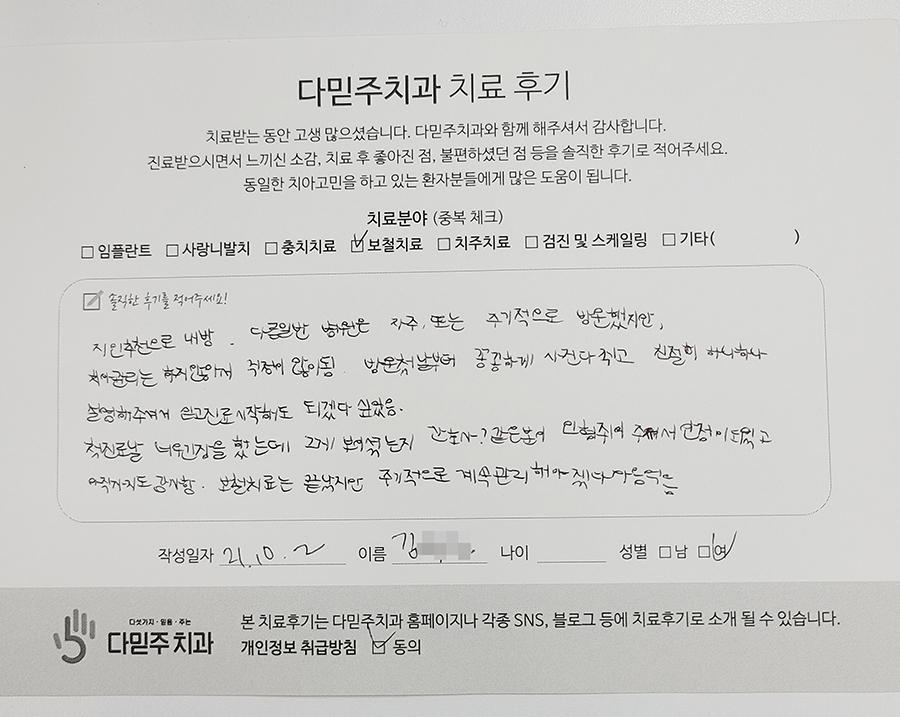 다믿주치과 치료 후기
치료받는 동안 고생 많으셨습니다. 다믿주치과와 함께 해주셔서 감사합니다.
진료받으시면서 느끼신 소감, 치료 후 좋아진 점, 불편하셨던 점 등을 솔직한 후기로 적어주세요.
동일한 치아고민을 하고 있는 환자분들에게 많은 도움이 됩니다.
치료분야 (중복 체크)
□ 임플란트 □ 사랑니발치 □ 충치치료 ☑ 보철치료 □ 치주치료 □ 검진 및 스케일링 □ 기타( )
솔직한 후기를 적어주세요!
지인추천으로 내방. 다른일반 병원은 자주, 또는 주기적으로 방문했지만,
치아관리는 하지않아서 걱정이 많이됨. 방문첫날부터 꼼꼼하게 사진다찍고 친절히 하나하나
설명해주셔서 믿고진료시작해도 되겠다 싶었음.
첫진료날 너무긴장을 했는데 그게 보여졌는지 간호사? 같은분이 인형쥐어 주셔서 안정이되었고
아직까지도 감사함. 보철치료는 끝났지만 주기적으로 계속관리해야 겠다 마음먹음
작성일자 21.10.2 이름 김 나이 성별 □남 ☑여
다섯가지·믿음·주는
다믿주치과
본 치료후기는 다믿주치과 홈페이지나 각종 SNS, 블로그 등에 치료후기로 소개 될 수 있습니다.
개인정보 취급방침 ☑ 동의